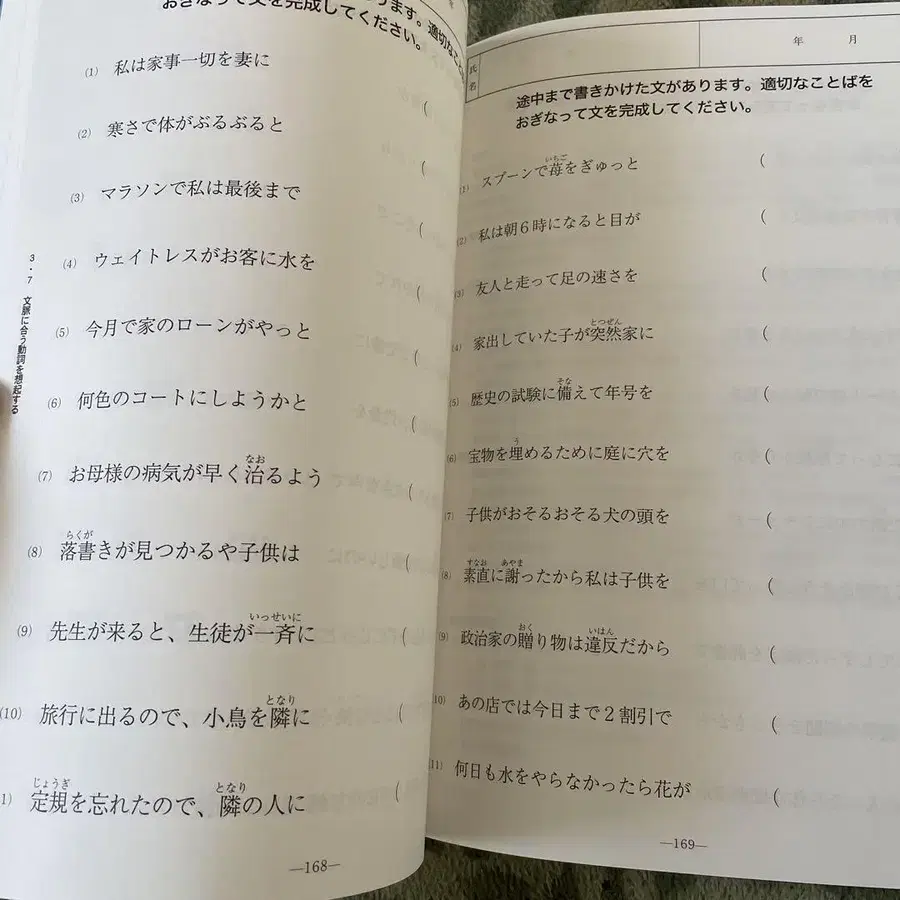 あります。適切なこ
おぎなって文を完成してください。
(1) 私は家事一切を妻に (
(2) 寒さで体がぶるぶると (
(3) マラソンで私は最後まで (
(4) ウェイトレスがお客に水を (
(5) 今月で家のローンがやっと (
(6) 何色のコートにしようかと (
(7) お母様の病気が早く治るよう (
なお
(8) 落書きが見つかるや子供は (
らくが
(9) 先生が来ると、生徒が一斉に (
いっせいに
(10) 旅行に出るので、小鳥を隣に (
となり
1) 定規を忘れたので、隣の人に (
じょうぎ となり
—168—
3・7 文脈に合う動詞を想起する
氏名
年 月
途中まで書きかけた文があります。適切なことばを
おぎなって文を完成してください。
(1) スプーンで苺をぎゅっと (
いちご
(2) 私は朝6時になると目が (
(3) 友人と走って足の速さを (
(4) 家出していた子が突然家に (
とつぜん
(5) 歴史の試験に備えて年号を (
そな
(6) 宝物を埋めるために庭に穴を (
う
(7) 子供がおそるおそる犬の頭を (
(8) 素直に謝ったから私は子供を (
すなお あやま
(9) 政治家の贈り物は違反だから (
おく いはん
(10) あの店では今日まで2割引で (
(11) 何日も水をやらなかったら花が (
—169—